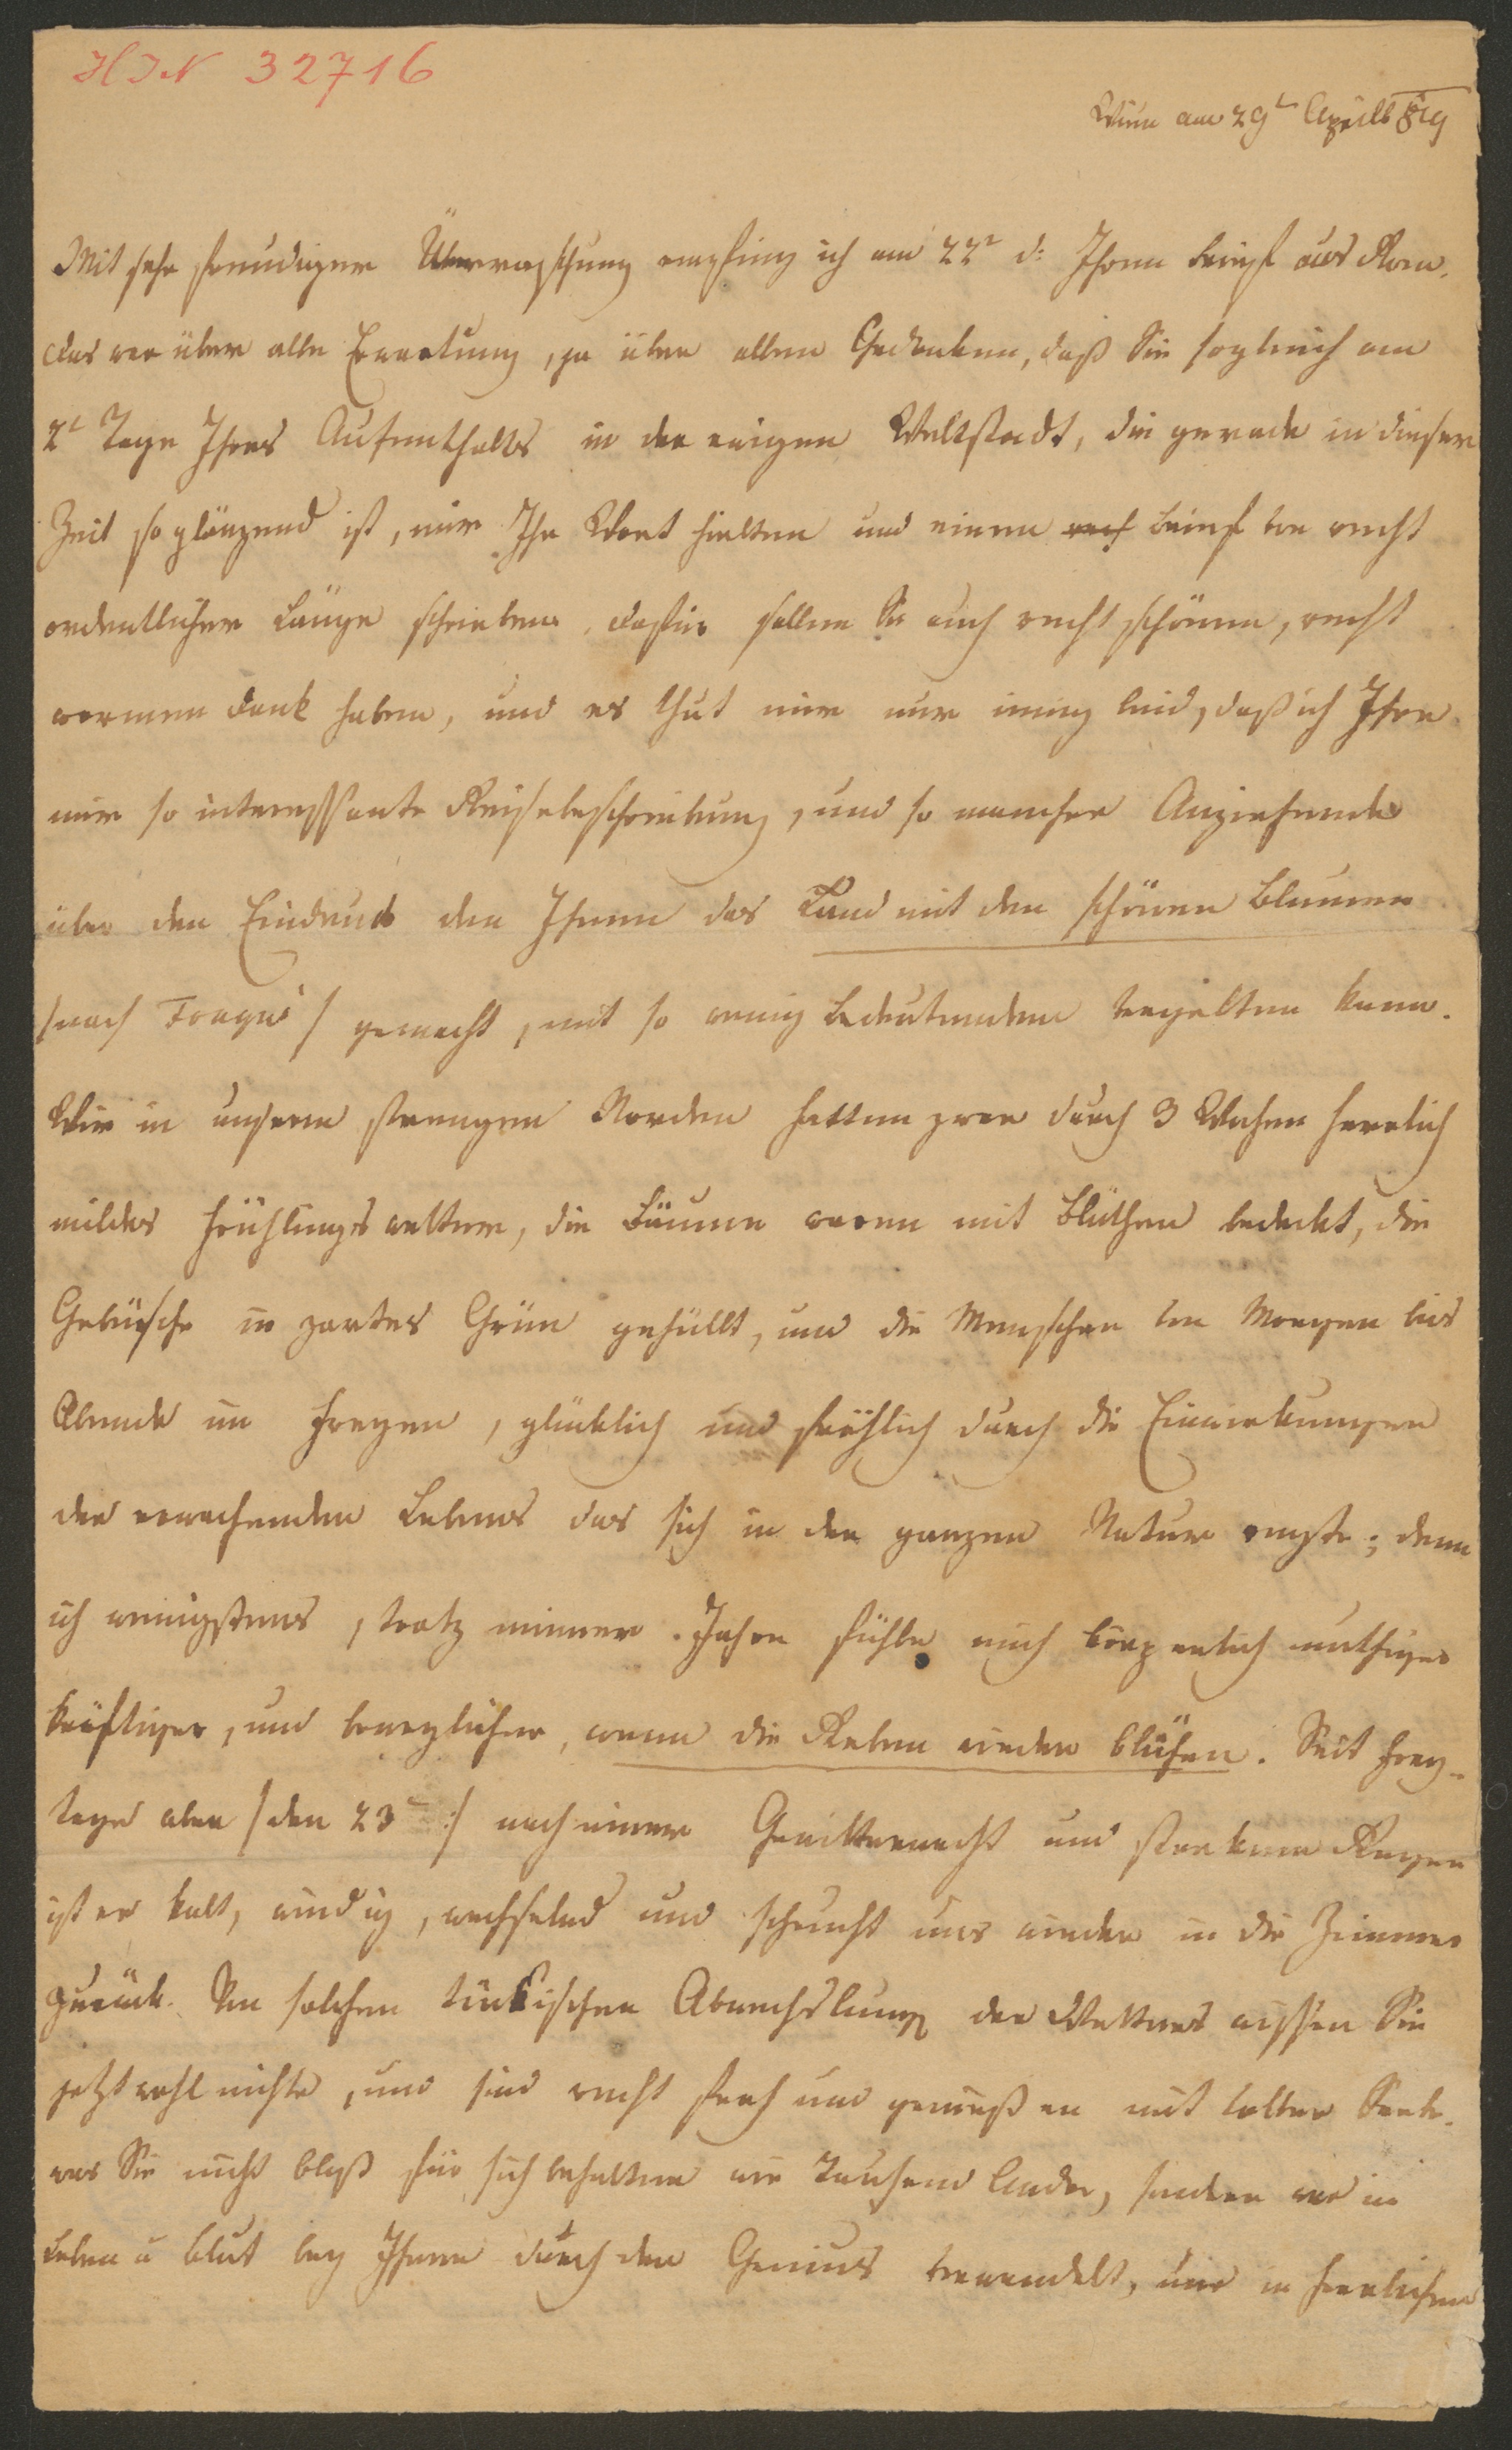 HIN 32716
Wien am 29t Aprills 819
Mit sehr freudiger Überraschung empfing ich am 22t d: Ihren Brief aus Rom.
das war über alle Erwartung, ja über allen Gedanken, daß Sie sogleich am
2t Tage Ihres Aufenthalts in der ewigen Weltstadt, die gerade in dieser
Zeit so glänzend ist, mir Ihr Wort hielten und einen Brief von recht
ordentlicher Länge schrieben, dafür sollen Sie auch recht schönen, recht
warmen Dank haben, und es thut mir nur innig leid, daß ich Ihre
mir so interessante Reisebeschreibung, und so mancher Anziehende
über den Eindruck den Ihnen das Land mit den schönen Blumen
/nach / gemacht, mit so wenig Bedeutenden vergelten kann.
Wir in unserm strengen Norden hatten zwar durch 3 Wochen herrlich
mildes Frühlingswetter, die Bäume waren mit Blüthen bedeckt, die
Gebüsche in zartes Grün gehüllt, und die Menschen von Morgen bis
Abends im Freyen, glücklich und fröhlich durch die Einwirkungen
des erwachenden Lebens das sich in der ganzen Natur regte; denn
ich wenigstens, trotz meiner Jahre fühle mich körperlich muthiger
kräftiger, und beweglicher, wenn die Reben wieder blühen. Seit Frey-
tags aber /den 23t :/ nach einer Gewitternacht und starkem Regen
ist es kalt, windig, wechselnd und scheucht uns wieder in die Zimmer
zurück. Von solchen tückischen Abwechslung des Wetters wissen Sie
jetzt wohl nichts, und sind recht froh und genießen mit voller Seele.
was Sie nicht bloß für sich behalten wie Tausend Andre, sondern was in
Leben u Blut bey Ihnen durch den Genius verwandelt, uns in herrlichen